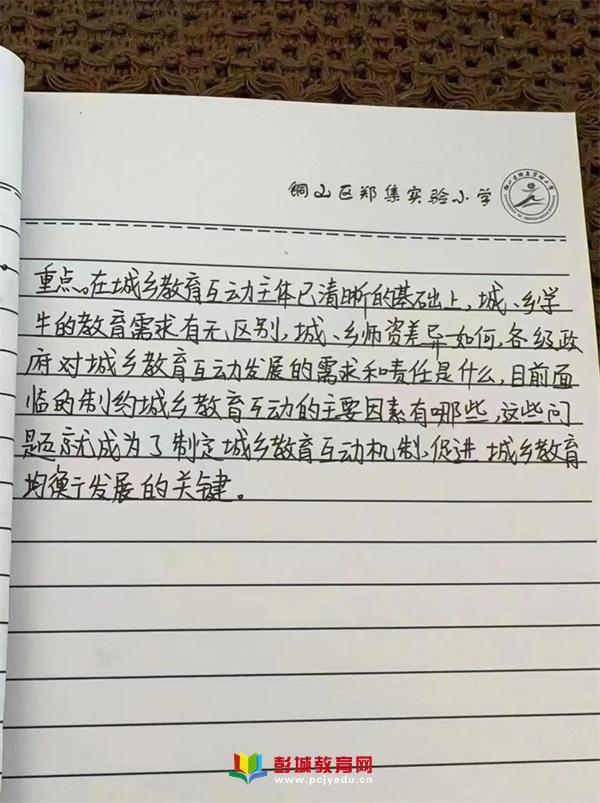 铜山区郑集实验小学
重点。在城乡教育互动主体已清晰的基础上，城、乡学
生的教育需求有无区别，城、乡师资差异如何，各级政
府对城乡教育互动发展的需求和责任是什么，目前面
临的制约城乡教育互动的主要因素有哪些，这些问
题就成为了制定城乡教育互动机制，促进城乡教育
均衡发展的关键。
彭城教育网
www.pcjyedu.cn